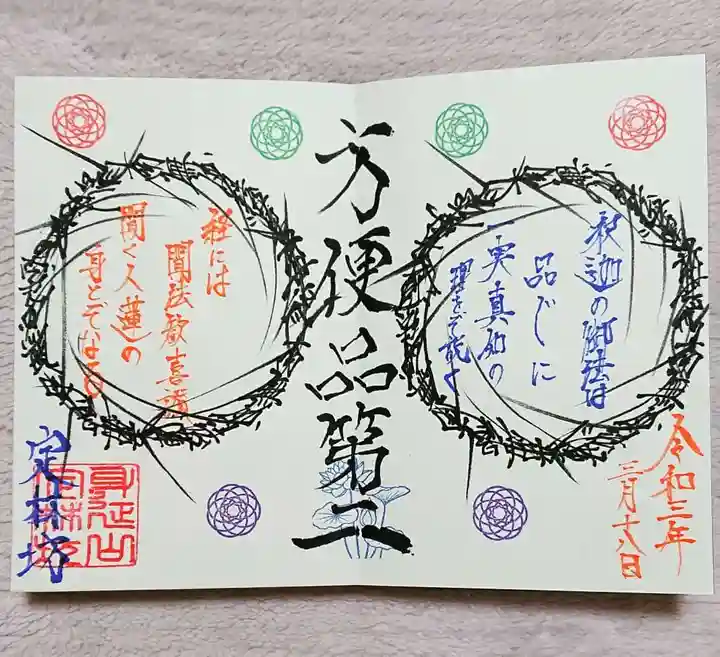 令和三年
三月十八日
釈迦の御法は
品〴〵に
一実真如の
理をぞ説く
方便品第二
経には
聞法歓喜讃
聞く人蓮の
身とぞなる
定林坊
身延山
定林坊